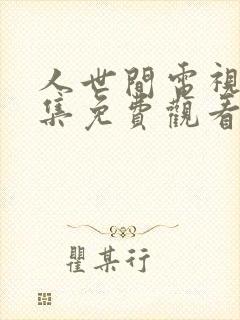 人世間電視
集免費觀看
瞿某行